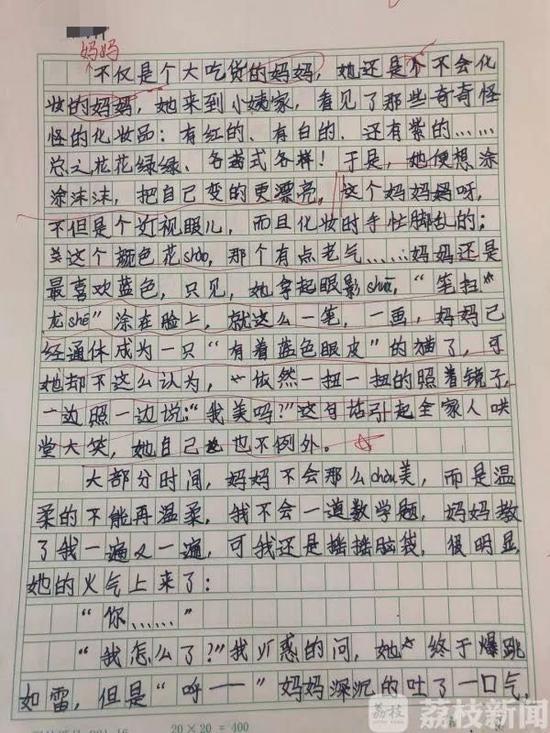 妈妈
不仅是个大吃货的妈妈，她还是个不会化
妆的妈妈，她来到小姨家，看见了那些奇奇怪
怪的化妆品：有红的、有白的、还有紫的……
总之花花绿绿、各式各样！于是，她便想涂
涂沫沫，把自己变的更漂亮。这个妈妈呀，
不但是个近视眼儿，而且化妆时手忙脚乱的；
这个颜色花shào，那个有点老气……妈妈还是
最喜欢蓝色，只见，她拿起眼影shuā，“笔
龙shé”涂在脸上，就这么一笔，一画，妈妈已
经通体成为一只“有着蓝色眼皮”的猫了，可
她却不这么认为，依然一扭一扭的照着镜子，
一边照一边说：“我美吗？”这句话引起全家人哄
堂大笑，她自己也不例外。
大部分时间，妈妈不会那么chòu美，而是温
柔的不能再温柔，我不会一道数学题，妈妈教
了我一遍又一遍，可我还是摇摇脑袋，很明显
她的火气上来了：
“你……”
“我怎么了？”我疑惑的问，她终于爆跳
如雷，但是“呼——”妈妈深沉的吐了一口气，
20×20=400
荔枝
荔枝新闻